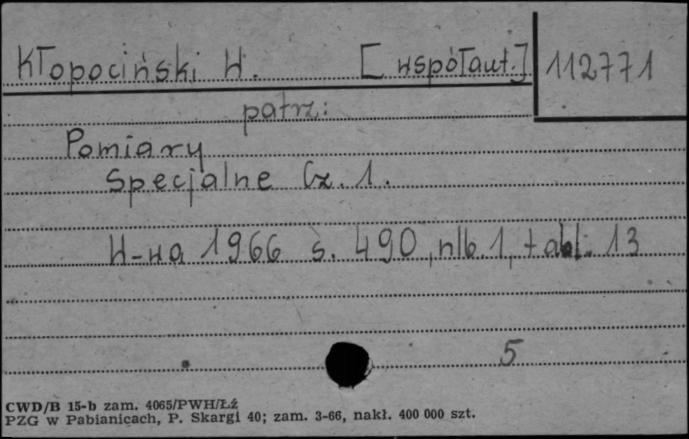 Kłopociński W. [współaut.] 112771
patrz:
Pomiary
Specjalne Cz. 1.
W-wa 1966 s. 490, nlb. 1, tabl. 13
5
CWD/B 15-b zam. 4065/PWH/Łź
PZG w Pabianicach, P. Skargi 40; zam. 3-66, nakł. 400 000 szt.